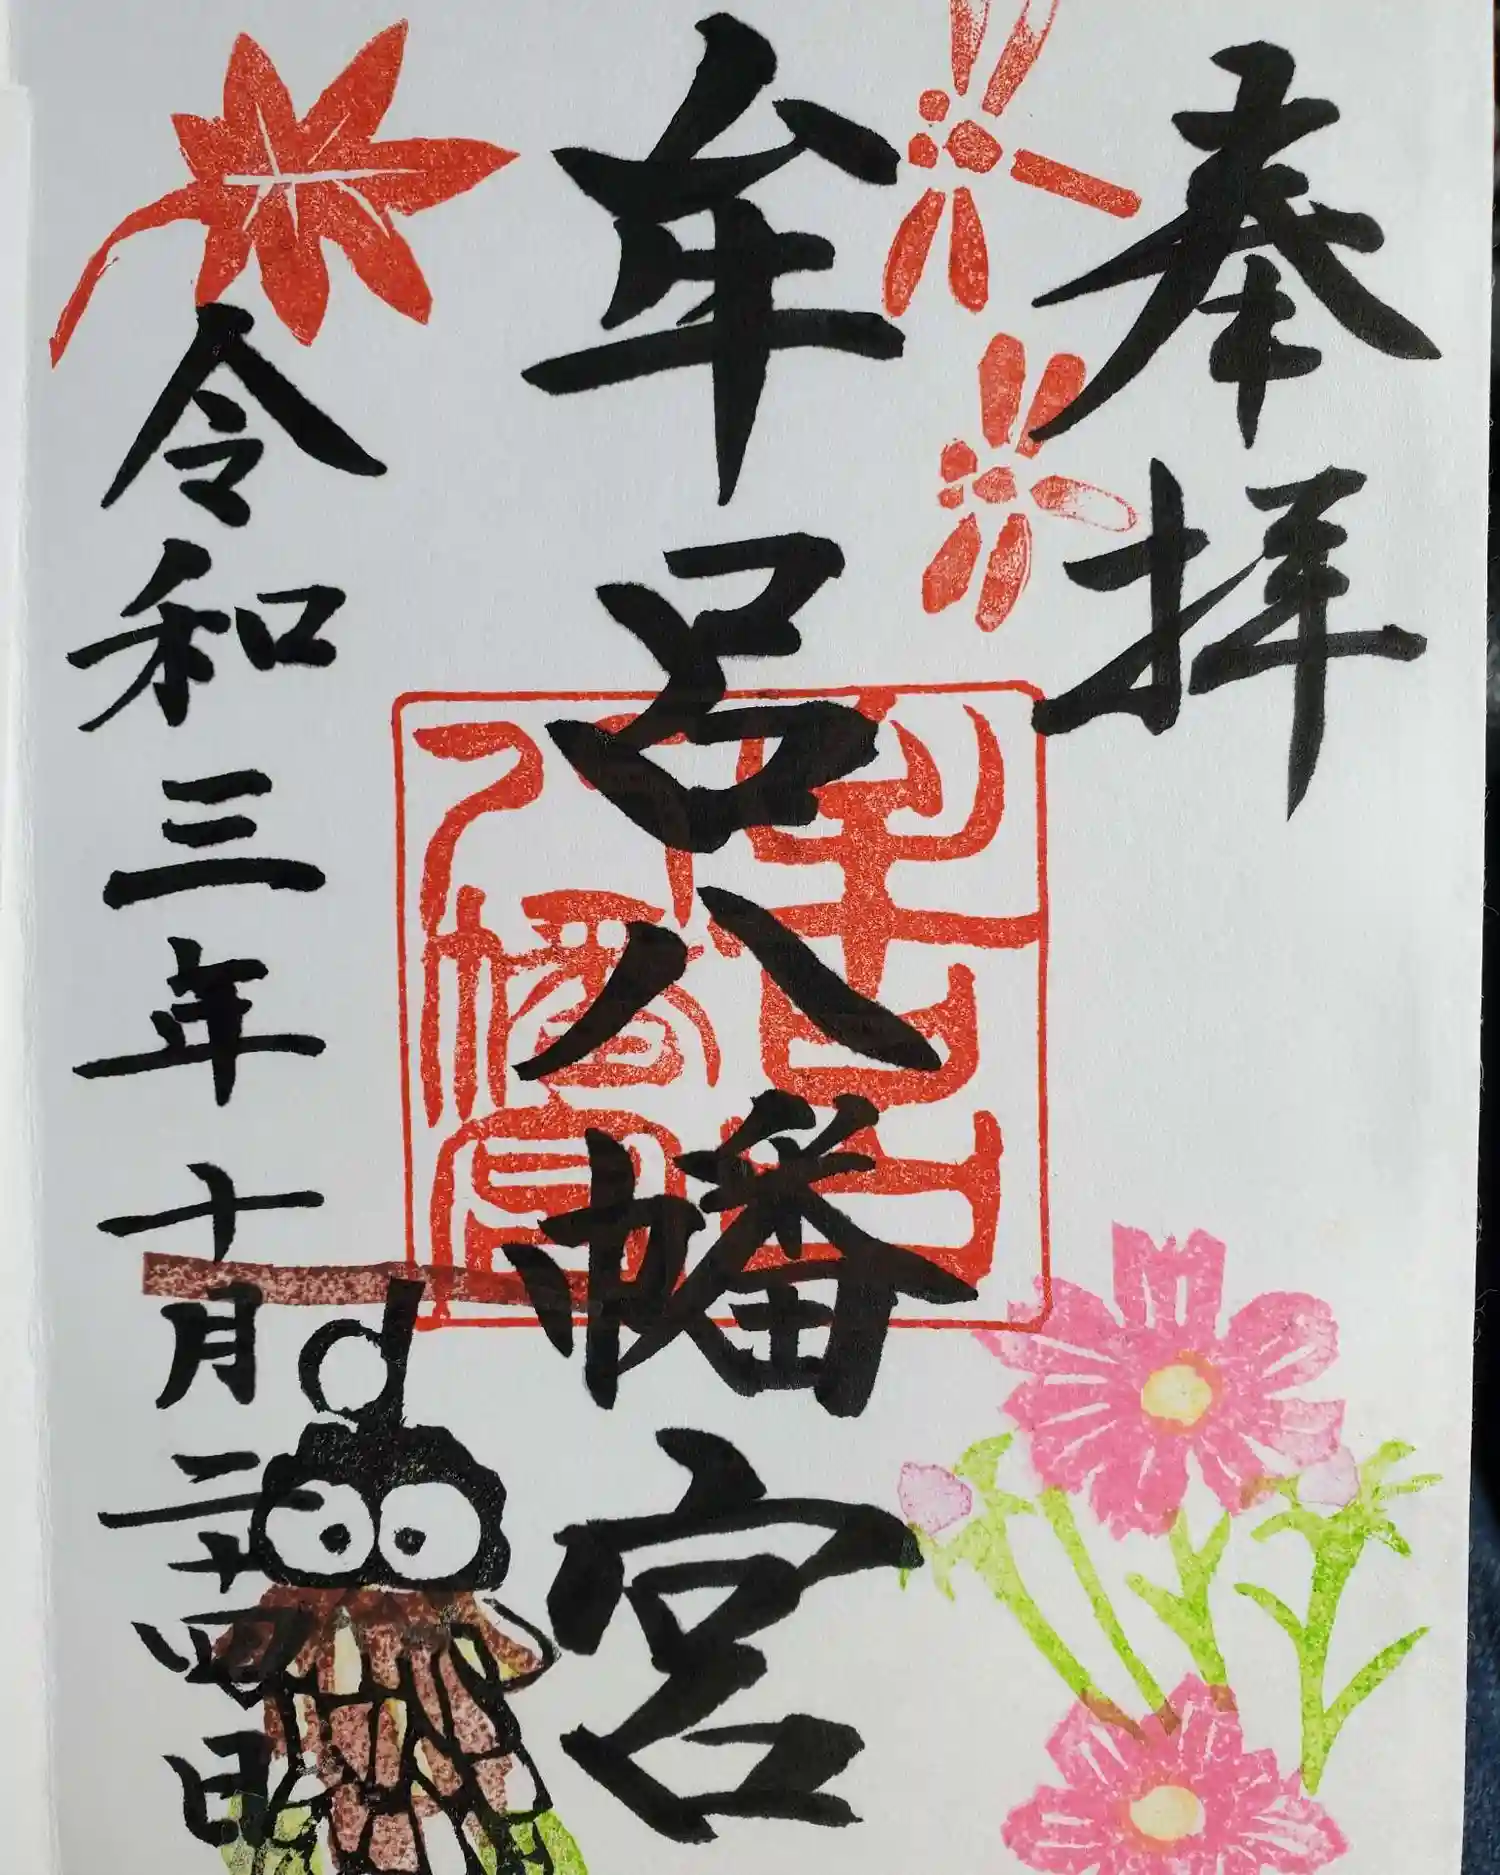 奉拝
牟呂八幡宮
牟呂八幡宮
令和三年十月二十四日